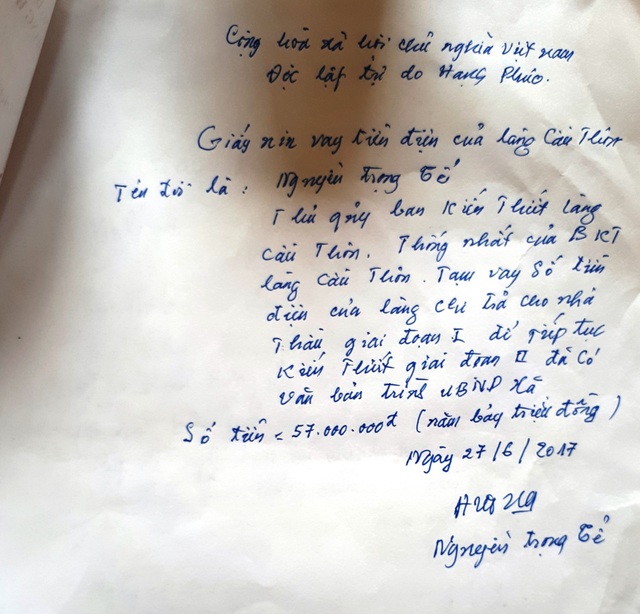 Cộng hoà xã hội chủ nghĩa việt nam
Độc lập tự do Hạnh Phúc.
Giấy xin vay tiền điện của làng Cầu Thôn
Tên tôi là: Nguyễn trọng Tế
Thủ qũy ban Kiến Thiết làng
Cầu Thôn. Thống nhất của BKT
làng Cầu Thôn. Tạm vay Số tiền
điện của làng chi trả cho nhà
Thầu giai đoạn I để tiếp tục
Kiến Thiết giai đoạn II đã có
văn bản trình UBND Xã
Số tiền = 57.000.000đ (năm bảy triệu đồng)
Ngày 27/6/2017
Nguyễn trọng Tế